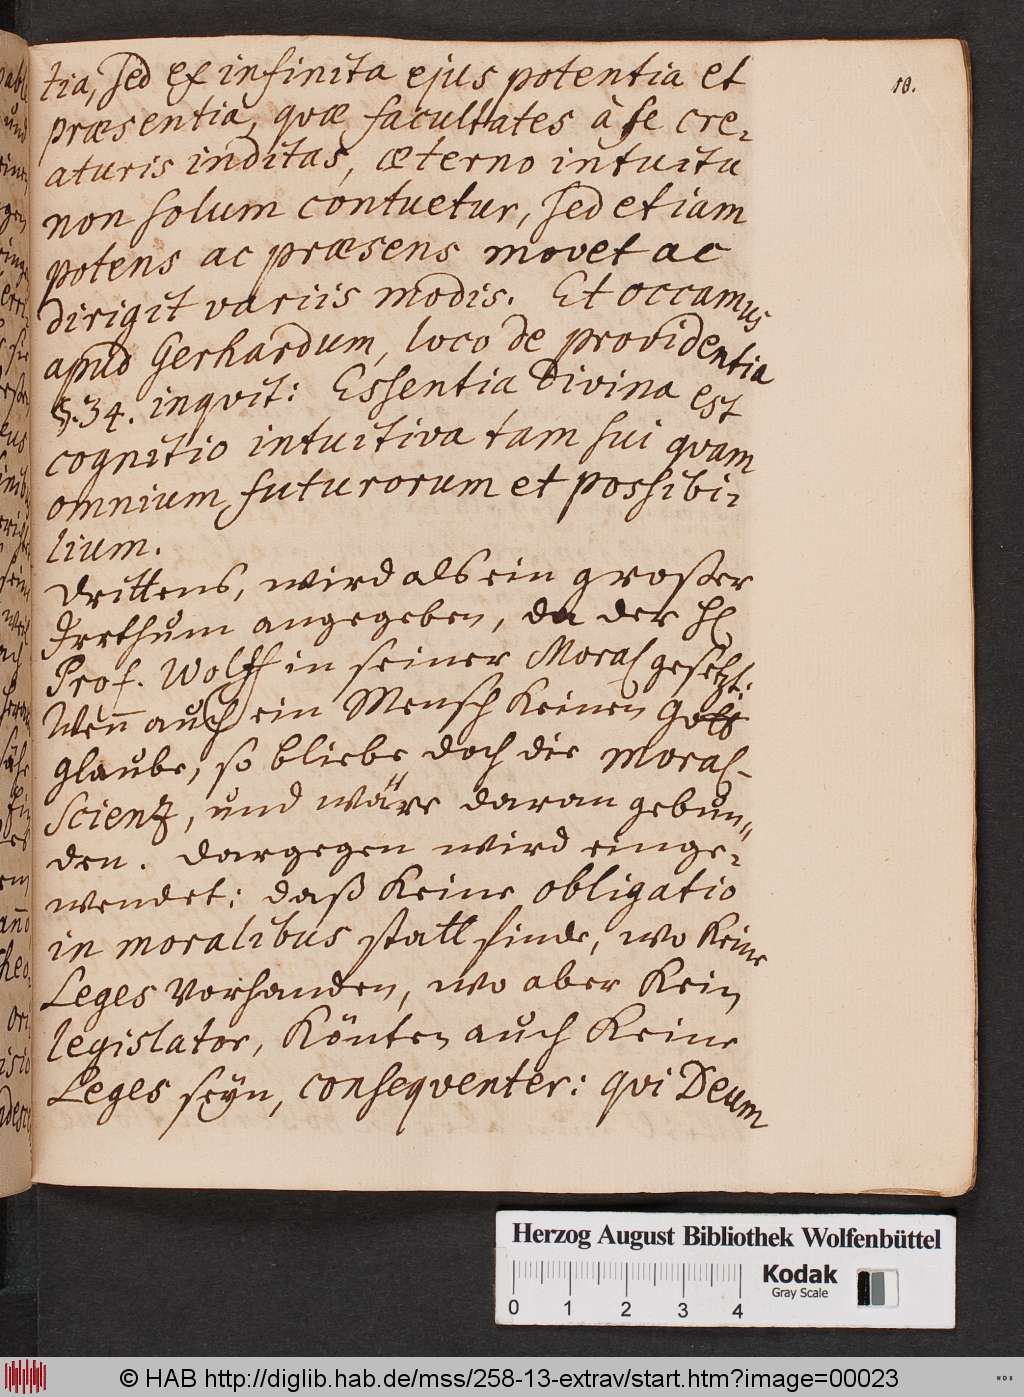 18.
tia, sed ex infinita ejus potentia et
præsentia, qvæ facultates à se cre-
aturis inditas, æterno intuitu
non solum contuetur, sed etiam
potens ac præsens movet ac
dirigit variis modis. Et occamus
apud Gerhardum, loco de providentia
§. 34. inqvit: Essentia Divina est
cognitio intuitiva tam sui qvam
omnium futurorum et possibi-
lium.
Drittens, wird als ein großer
Irrthum angegeben, da der H
Prof. Wolff in seiner Moral gesetzt:
Weñ auch ein Mensch keinen Gott
glaube, so bliebe doch die Moral-
Scienz, und wäre daran gebun-
den. dargegen wird einge-
wendet: daß keine obligatio
in moralibus statt finde, wo keine
Leges vorhanden, wo aber kein
legislator, könten auch keine
Leges seyn, conseqventer: qvi Deum
Herzog August Bibliothek Wolfenbüttel
0 1 2 3 4
Kodak
Gray Scale
© HAB http://diglib.hab.de/mss/258-13-extrav/start.htm?image=00023